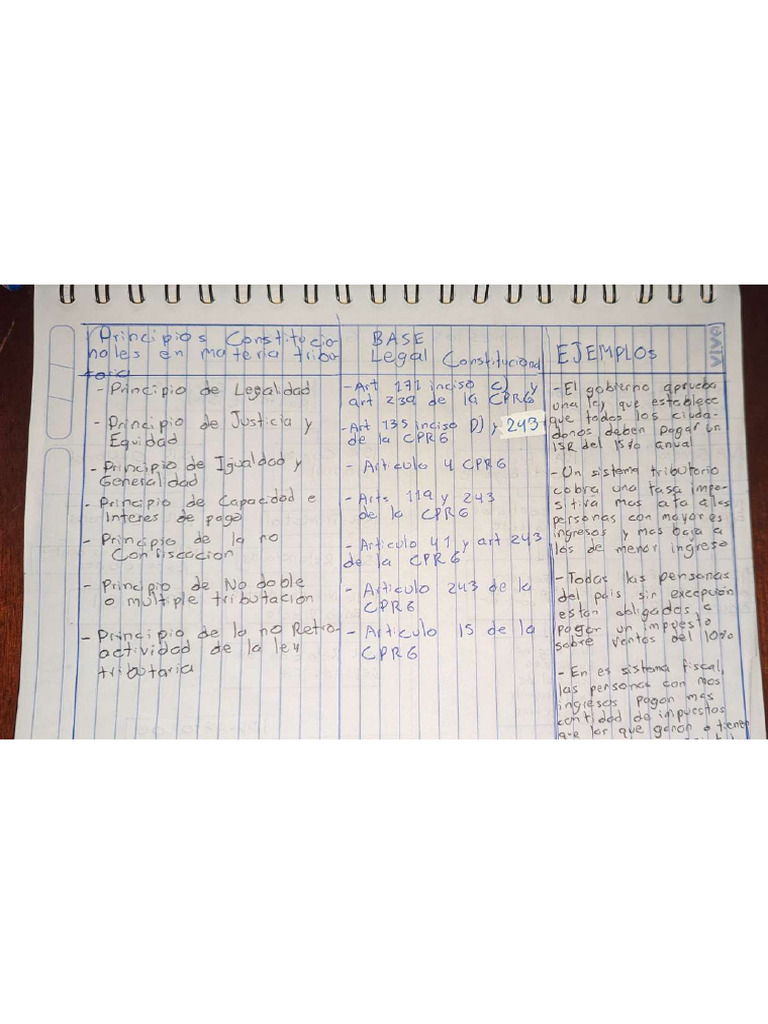 Principios Constitucio-
nales en materia tribu-
taria
- Principio de Legalidad
- Principio de Justicia y
Equidad
- Principio de Igualdad y
Generalidad
- Principio de Capacidad e
Interes de pago
- Principio de la no
Confiscacion
- Principio de No doble
o multiple tributacion
- Principio de la no Retro-
actividad de la ley
tributaria
BASE
Legal Constitucional
- Art 171 inciso c) y
art 239 de la CPRG
- Art 135 inciso D) y 243
de la CPRG
- Articulo 4 CPRG
- Arts 119 y 243
de la CPRG
- Articulo 41 y art 243
de la CPRG
- Articulo 243 de la
CPRG
- Articulo 15 de la
CPRG
EJEMPLOS
- El gobierno aprueba
una ley que establece
que todos los ciuda-
danos deben pagar un
ISR del 15% anual
- Un sistema tributario
cobra una tasa impo-
sitiva mas alta a las
personas con mayores
ingresos y mas baja a
los de menor ingreso
- Todas las personas
del pais sin excepción
estan obligadas a
pagar un impuesto
sobre ventas del 10%
- En es sistema fiscal,
las personas con mas
ingresos pagan mas
cantidad de impuestos
que los que ganan o tienen
vivo